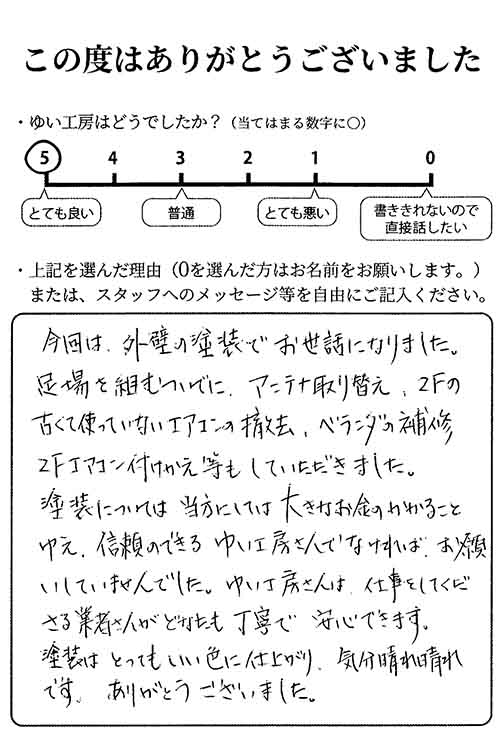 この度はありがとうございました
・ゆい工房はどうでしたか？（当てはまる数字に〇）
5 4 3 2 1 0
とても良い 普通 とても悪い 書ききれないので直接話したい
・上記を選んだ理由（0を選んだ方はお名前をお願いします。）
または、スタッフへのメッセージ等を自由にご記入ください。
今回は、外壁の塗装でお世話になりました。
足場を組むついでに、アンテナ取り替え、2Fの
古くて使っていないエアコンの撤去、ベランダの補修
2Fエアコン付けかえ等もしていただきました。
塗装については当方にしては大きなお金のかかること
ゆえ、信頼のできるゆい工房さんでなければ、お願
いしていませんでした。ゆい工房さんは、仕事をしてくだ
さる業者さんがどなたも丁寧で安心できます。
塗装はとってもいい色に仕上がり、気分晴れ晴れ
です。ありがとうございました。